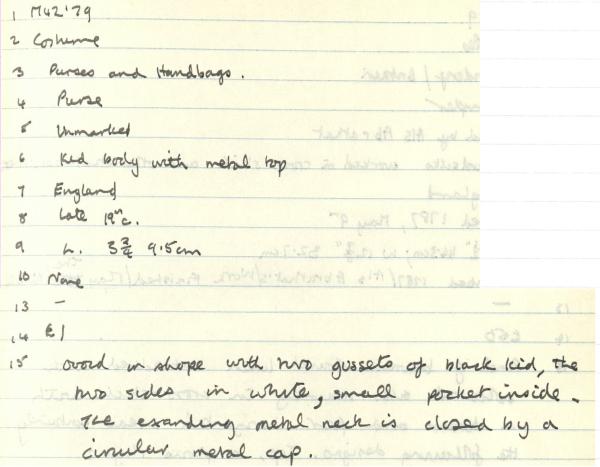 1 M42'79
2 Costume
3 Purses and Handbags.
4 Purse
5 Unmarked
6 Kid body with metal top
7 England
8 Late 19th c.
9 L. 3 3/4 9.5cm
10 None
13 –
14 £1
15 ovoid in shape with two gussets of black kid, the
two sides in white, small pocket inside.
The exanding metal neck is closed by a
circular metal cap.